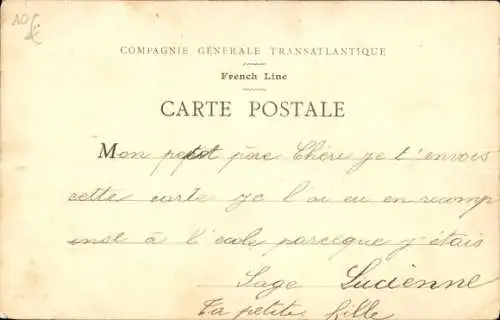 COMPAGNIE GÉNÉRALE TRANSATLANTIQUE
French Line
CARTE POSTALE
Mon petit père Chéri je t'envois
cette carte je l'ai eu en recomp
ense à l'école parceque j'étais
Sage Lucienne
Ta petite fille